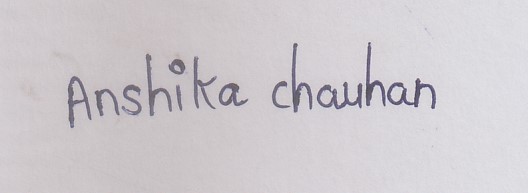 Anshika chauhan